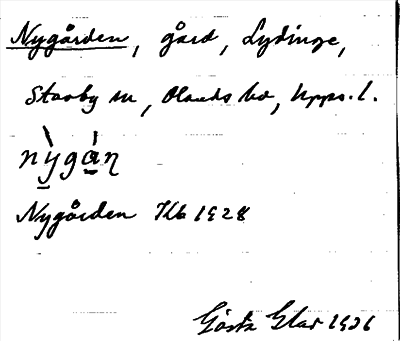 Nygården, gård, Lydinge,
Stavby sn, Olands hd, Upps. l.
nỳgán
Nygården Kb 1928
Gösta 1926